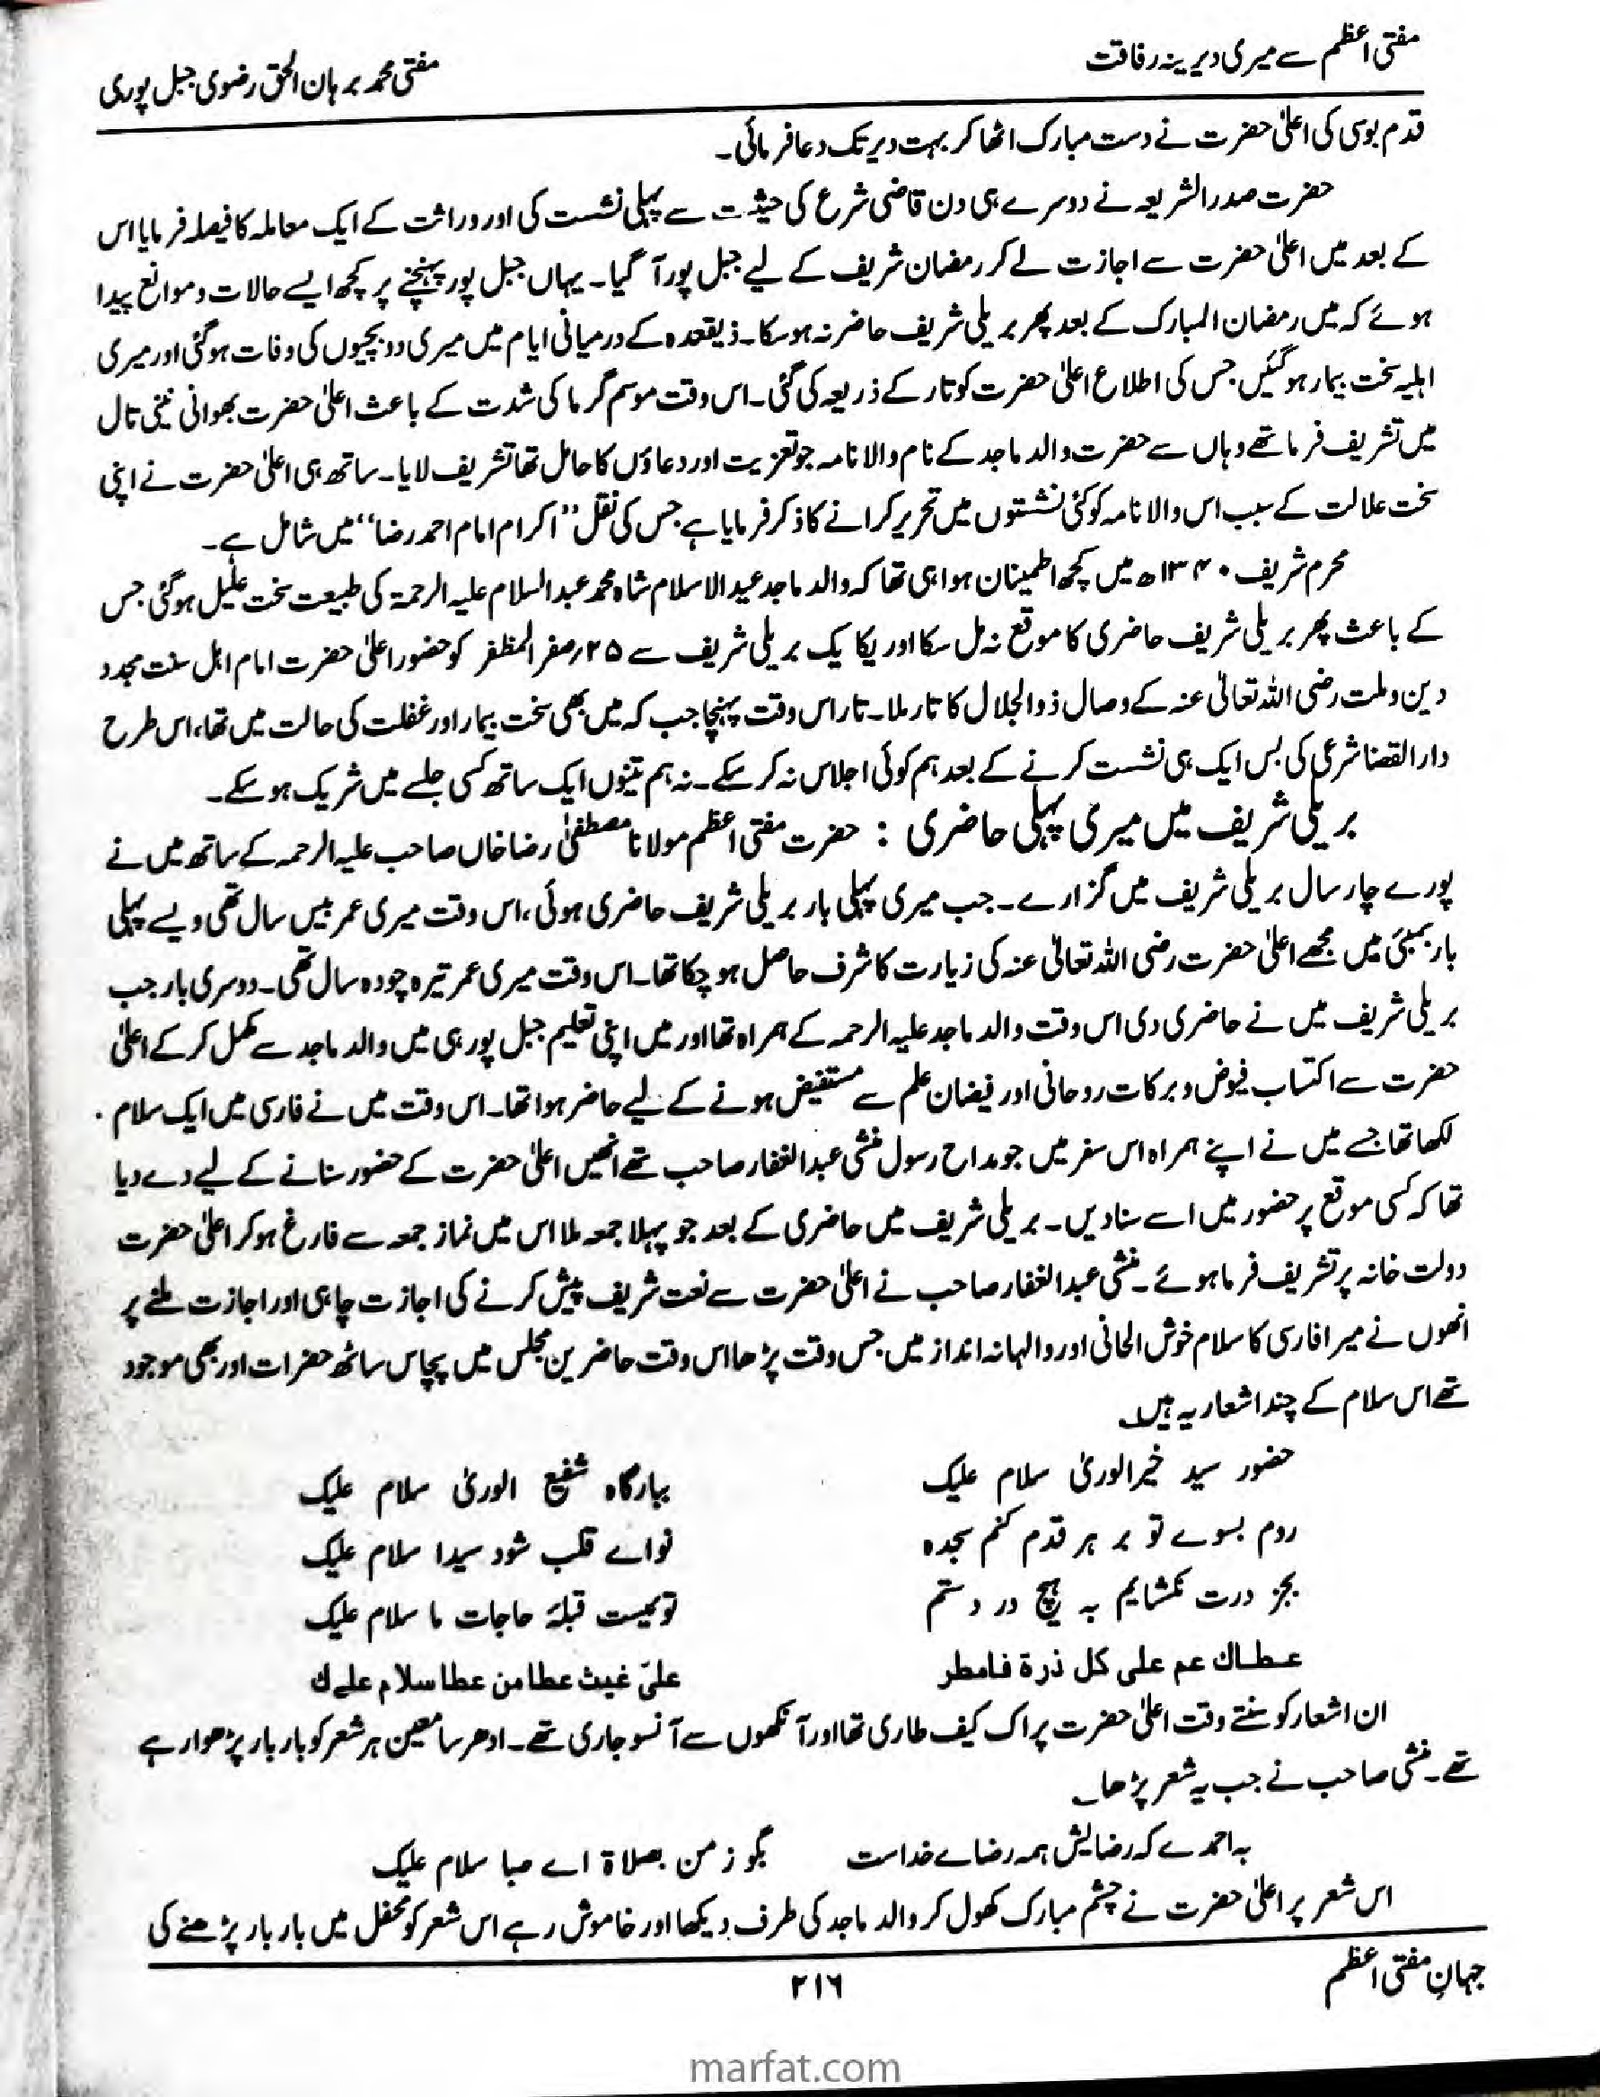 مفتی اعظم سے میری دیرینہ رفاقت
مفتی محمد برہان الحق رضوی جبل پوری
قدم بوسی کی اعلیٰ حضرت نے دست مبارک اٹھا کر بہت دیر تک دعا فرمائی۔
حضرت صدرالشریعہ نے دوسرے ہی دن قاضی شرع کی حیثیت سے پہلی نشست کی اور وراثت کے ایک معاملہ کا فیصلہ فرمایا اس
کے بعد میں اعلیٰ حضرت سے اجازت لے کر رمضان شریف کے لیے جبل پور آ گیا۔ یہاں جبل پور پہنچنے پر کچھ ایسے حالات و موانع پیدا
ہوئے کہ میں رمضان المبارک کے بعد پھر بریلی شریف حاضر نہ ہوسکا۔ ذیقعدہ کے درمیانی ایام میں میری دو بچیوں کی وفات ہوگئی اور میری
اہلیہ سخت بیمار ہوگئیں جس کی اطلاع اعلیٰ حضرت کو تار کے ذریعہ کی گئی۔ اس وقت موسم گرما کی شدت کے باعث اعلیٰ حضرت بھوانی نینی تال
میں تشریف فرما تھے وہاں سے حضرت والد ماجد کے نام والا نامہ جو تعزیت اور دعاؤں کا حامل تھا تشریف لایا۔ ساتھ ہی اعلیٰ حضرت نے اپنی
سخت علالت کے سبب اس والا نامہ کو کئی نشستوں میں تحریر کرانے کا ذکر فرمایا ہے جس کی نقل ’’اکرام امام احمد رضا‘‘ میں شامل ہے۔
محرم شریف ۱۳۴۰ھ میں کچھ اطمینان ہوا ہی تھا کہ والد ماجد عید الاسلام شاہ محمد عبدالسلام علیہ الرحمۃ کی طبیعت سخت علیل ہوگئی جس
کے باعث پھر بریلی شریف حاضری کا موقع نہ مل سکا اور یکا یک بریلی شریف سے ۲۵؍صفر المظفر کو حضور اعلیٰ حضرت امام اہل سنت مجدد
دین و ملت رضی اللہ تعالیٰ عنہ کے وصال ذوالجلال کا تار ملا۔ تار اس وقت پہنچا جب کہ میں بھی سخت بیمار اور غفلت کی حالت میں تھا، اس طرح
دارالقضا شرعی کی بس ایک ہی نشست کرنے کے بعد ہم کوئی اجلاس نہ کر سکے۔ نہ ہم تینوں ایک ساتھ کسی جلسے میں شریک ہو سکے۔
بریلی شریف میں میری پہلی حاضری : حضرت مفتی اعظم مولانا مصطفیٰ رضا خاں صاحب علیہ الرحمہ کے ساتھ میں نے
پورے چار سال بریلی شریف میں گزارے۔ جب میری پہلی بار بریلی شریف حاضری ہوئی، اس وقت میری عمر بیس سال تھی ویسے پہلی
بار بمبئی میں مجھے اعلیٰ حضرت رضی اللہ تعالیٰ عنہ کی زیارت کا شرف حاصل ہو چکا تھا۔ اس وقت میری عمر تیرہ چودہ سال تھی۔ دوسری بار جب
بریلی شریف میں نے حاضری دی اس وقت والد ماجد علیہ الرحمہ کے ہمراہ تھا اور میں اپنی تعلیم جبل پور ہی میں والد ماجد سے مکمل کر کے اعلیٰ
حضرت سے اکتساب فیوض و برکات روحانی اور فیضان علم سے مستفیض ہونے کے لیے حاضر ہوا تھا۔ اس وقت میں نے فارسی میں ایک سلام
لکھا تھا جسے میں نے اپنے ہمراہ اس سفر میں جو مداح رسول منشی عبدالغفار صاحب تھے انھیں اعلیٰ حضرت کے حضور سنانے کے لیے دے دیا
تھا کہ کسی موقع پر حضور میں اسے سنا دیں۔ بریلی شریف میں حاضری کے بعد جو پہلا جمعہ ملا اس میں نماز جمعہ سے فارغ ہوکر اعلیٰ حضرت
دولت خانہ پر تشریف فرما ہوئے۔ منشی عبدالغفار صاحب نے اعلیٰ حضرت سے نعت شریف پیش کرنے کی اجازت چاہی اور اجازت ملنے پر
انھوں نے میرا فارسی کا سلام خوش الحانی اور والہانہ انداز میں جس وقت پڑھا اس وقت حاضرین مجلس میں پچاس ساٹھ حضرات اور بھی موجود
تھے اس سلام کے چند اشعار یہ ہیں۔
حضور سید خیر الوریٰ سلام علیک ببارگاہ شفیع الوریٰ سلام علیک
روم بسوے تو بر ہر قدم کنم سجدہ نواے قلب شود سیدا سلام علیک
بجز درت نکشایم بہ ہیچ در دستم توئیست قبلۂ حاجات ما سلام علیک
عطاك عم على كل ذرة فامطر علىّ غيث عطا من عطا سلام عليك
ان اشعار کو سنتے وقت اعلیٰ حضرت پر اک کیف طاری تھا اور آنکھوں سے آنسو جاری تھے۔ ادھر سامعین ہر شعر کو بار بار پڑھوا رہے
تھے۔ منشی صاحب نے جب یہ شعر پڑھا۔
بہ احمدے کہ رضایش ہمہ رضاے خداست بگو ز من بصلاۃ اے صبا سلام علیک
اس شعر پر اعلیٰ حضرت نے چشم مبارک کھول کر والد ماجد کی طرف دیکھا اور خاموش رہے اس شعر کو محفل میں بار بار پڑھنے کی
جہانِ مفتی اعظم
۲۱۶
marfat.com